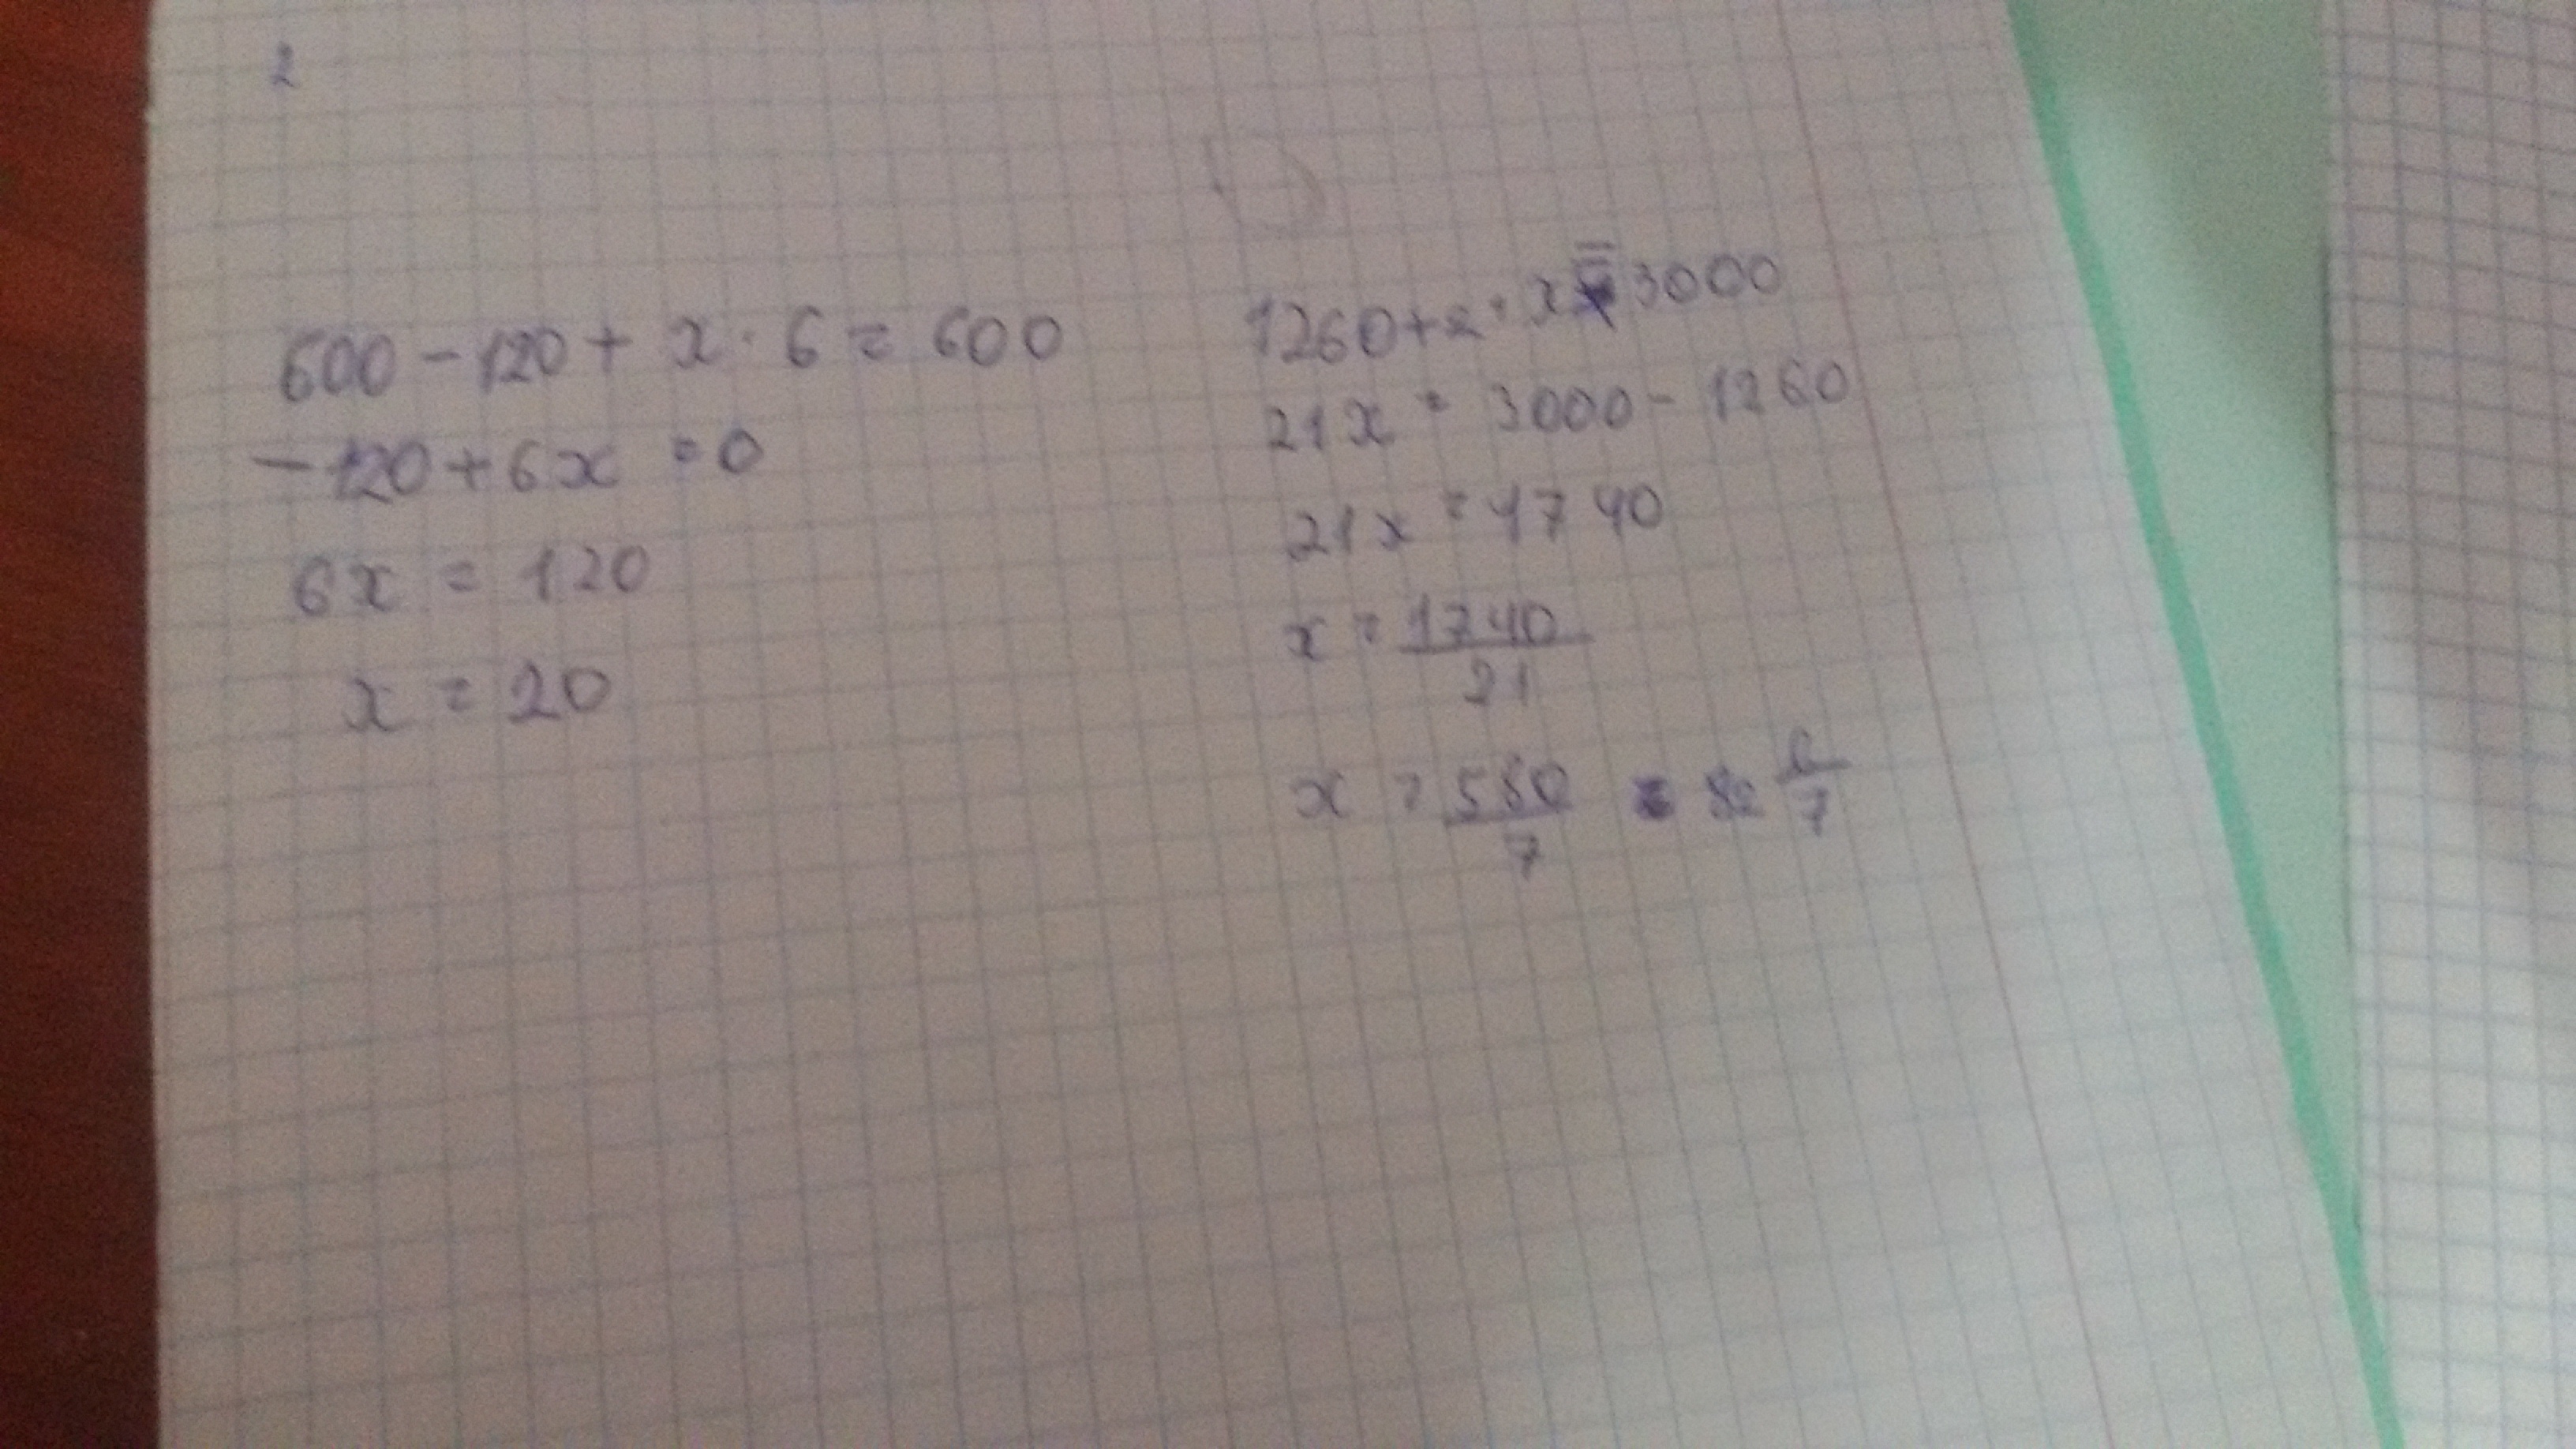 2
600 - 120 + x · 6 = 600
- 120 + 6x = 0
6x = 120
x = 20
1260 + 2 · x = 3000
21x = 3000 - 1260
21x = 1740
x = 1740/21
x = 580/7 = 82 6/7